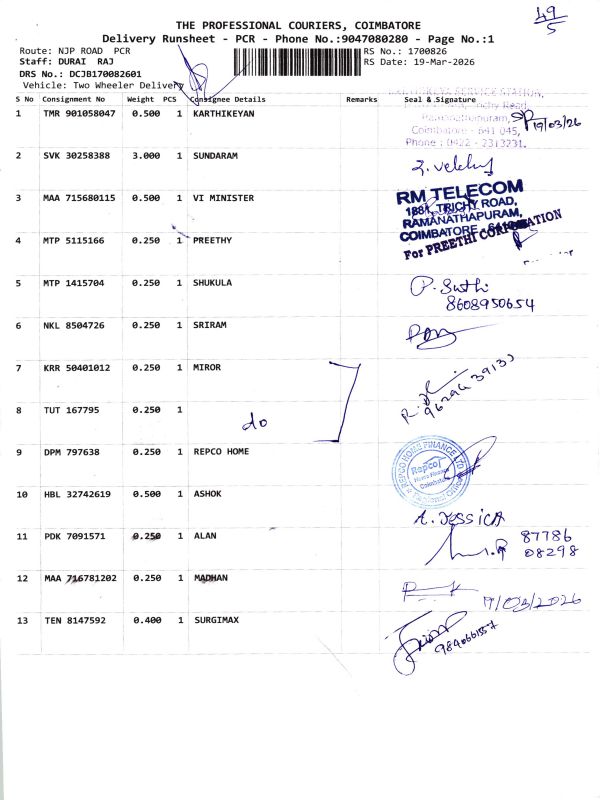 49
5
THE PROFESSIONAL COURIERS, COIMBATORE
Delivery Runsheet - PCR - Phone No.:9047080280 - Page No.:1
Route: NJP ROAD PCR
RS No.: 1700826
Staff: DURAI RAJ
RS Date: 19-Mar-2026
DRS No.: DCJB170082601
Vehicle: Two Wheeler Delivery
S No Consignment No Weight PCS Consignee Details Remarks Seal & Signature
1 TMR 901058047 0.500 1 KARTHIKEYAN
SERVICE STATION,
Trichy Road
Ramanathapuram,
Coimbatore - 641 045,
Phone : 0422 - 2313231.
19/03/26
2 SVK 30258388 3.000 1 SUNDARAM
3 MAA 715680115 0.500 1 VI MINISTER
RM TELECOM
188A, TRICHY ROAD,
RAMANATHAPURAM,
COIMBATORE
4 MTP 5115166 0.250 1 PREETHY
For PREETHI CORPORATION
5 MTP 1415704 0.250 1 SHUKULA
P. Suthi
8608950654
6 NKL 8504726 0.250 1 SRIRAM
7 KRR 50401012 0.250 1 MIROR
8 TUT 167795 0.250 1
do
9 DPM 797638 0.250 1 REPCO HOME
REPCO HOME FINANCE LTD
Repco
Home Finance
Coimbatore
10 HBL 32742619 0.500 1 ASHOK
A. JESSICA
11 PDK 7091571 0.250 1 ALAN
87786
08298
12 MAA 716781202 0.250 1 MADHAN
19/03/2026
13 TEN 8147592 0.400 1 SURGIMAX